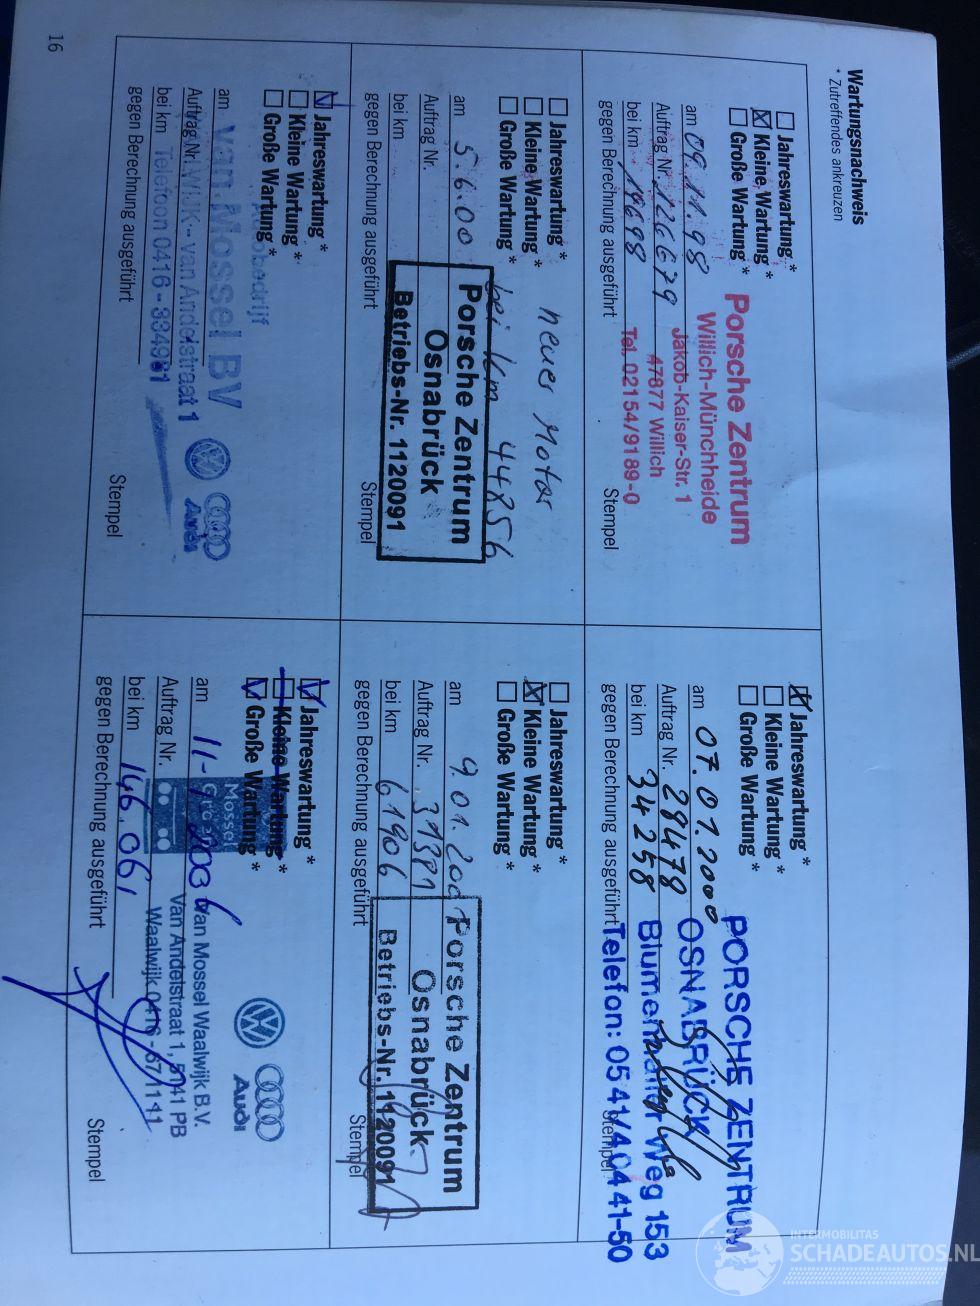 Wartungsnachweis
* Zutreffendes ankreuzen
Jahreswartung *
Kleine Wartung *
Große Wartung *
am 09.11.98
Auftrag Nr. 1266679
bei km 19698
gegen Berechnung ausgeführt
Porsche Zentrum
Willich-Münchheide
Jakob-Kaiser-Str. 1
47877 Willich
Tel. 02154/9189-0
Stempel
Jahreswartung *
Kleine Wartung *
Große Wartung *
am 07.07.2000
Auftrag Nr. 28478
bei km 34258
gegen Berechnung ausgeführt
PORSCHE ZENTRUM
OSNABRÜCK
Blumenhaller Weg 153
Telefon: 0541/40441-50
Stempel
Jahreswartung *
Kleine Wartung *
Große Wartung *
neuer Motor
bei km 44856
am 5.6.00
Auftrag Nr.
bei km
gegen Berechnung ausgeführt
Porsche Zentrum
Osnabrück
Betriebs-Nr. 1120091
Stempel
Jahreswartung *
Kleine Wartung *
Große Wartung *
am 9.01.200
Auftrag Nr. 31381
bei km 61906
gegen Berechnung ausgeführt
Porsche Zentrum
Osnabrück
Betriebs-Nr. 1120091
Stempel
Jahreswartung *
Kleine Wartung *
Große Wartung *
am
Auftrag Nr.
bei km
gegen Berechnung ausgeführt
van Mossel BV
van Andelstraat 1
Telefoon 0416 - 334981
Audi
Stempel
Jahreswartung *
Kleine Wartung *
Große Wartung *
am 11-
Auftrag Nr.
bei km 146.061
gegen Berechnung ausgeführt
Mossel
Van Mossel Waalwijk B.V.
Van Andelstraat 1, 5141 PB
Waalwijk 0416
Audi
Stempel
16
INTERMOBILITAS
SCHADEAUTOS.NL